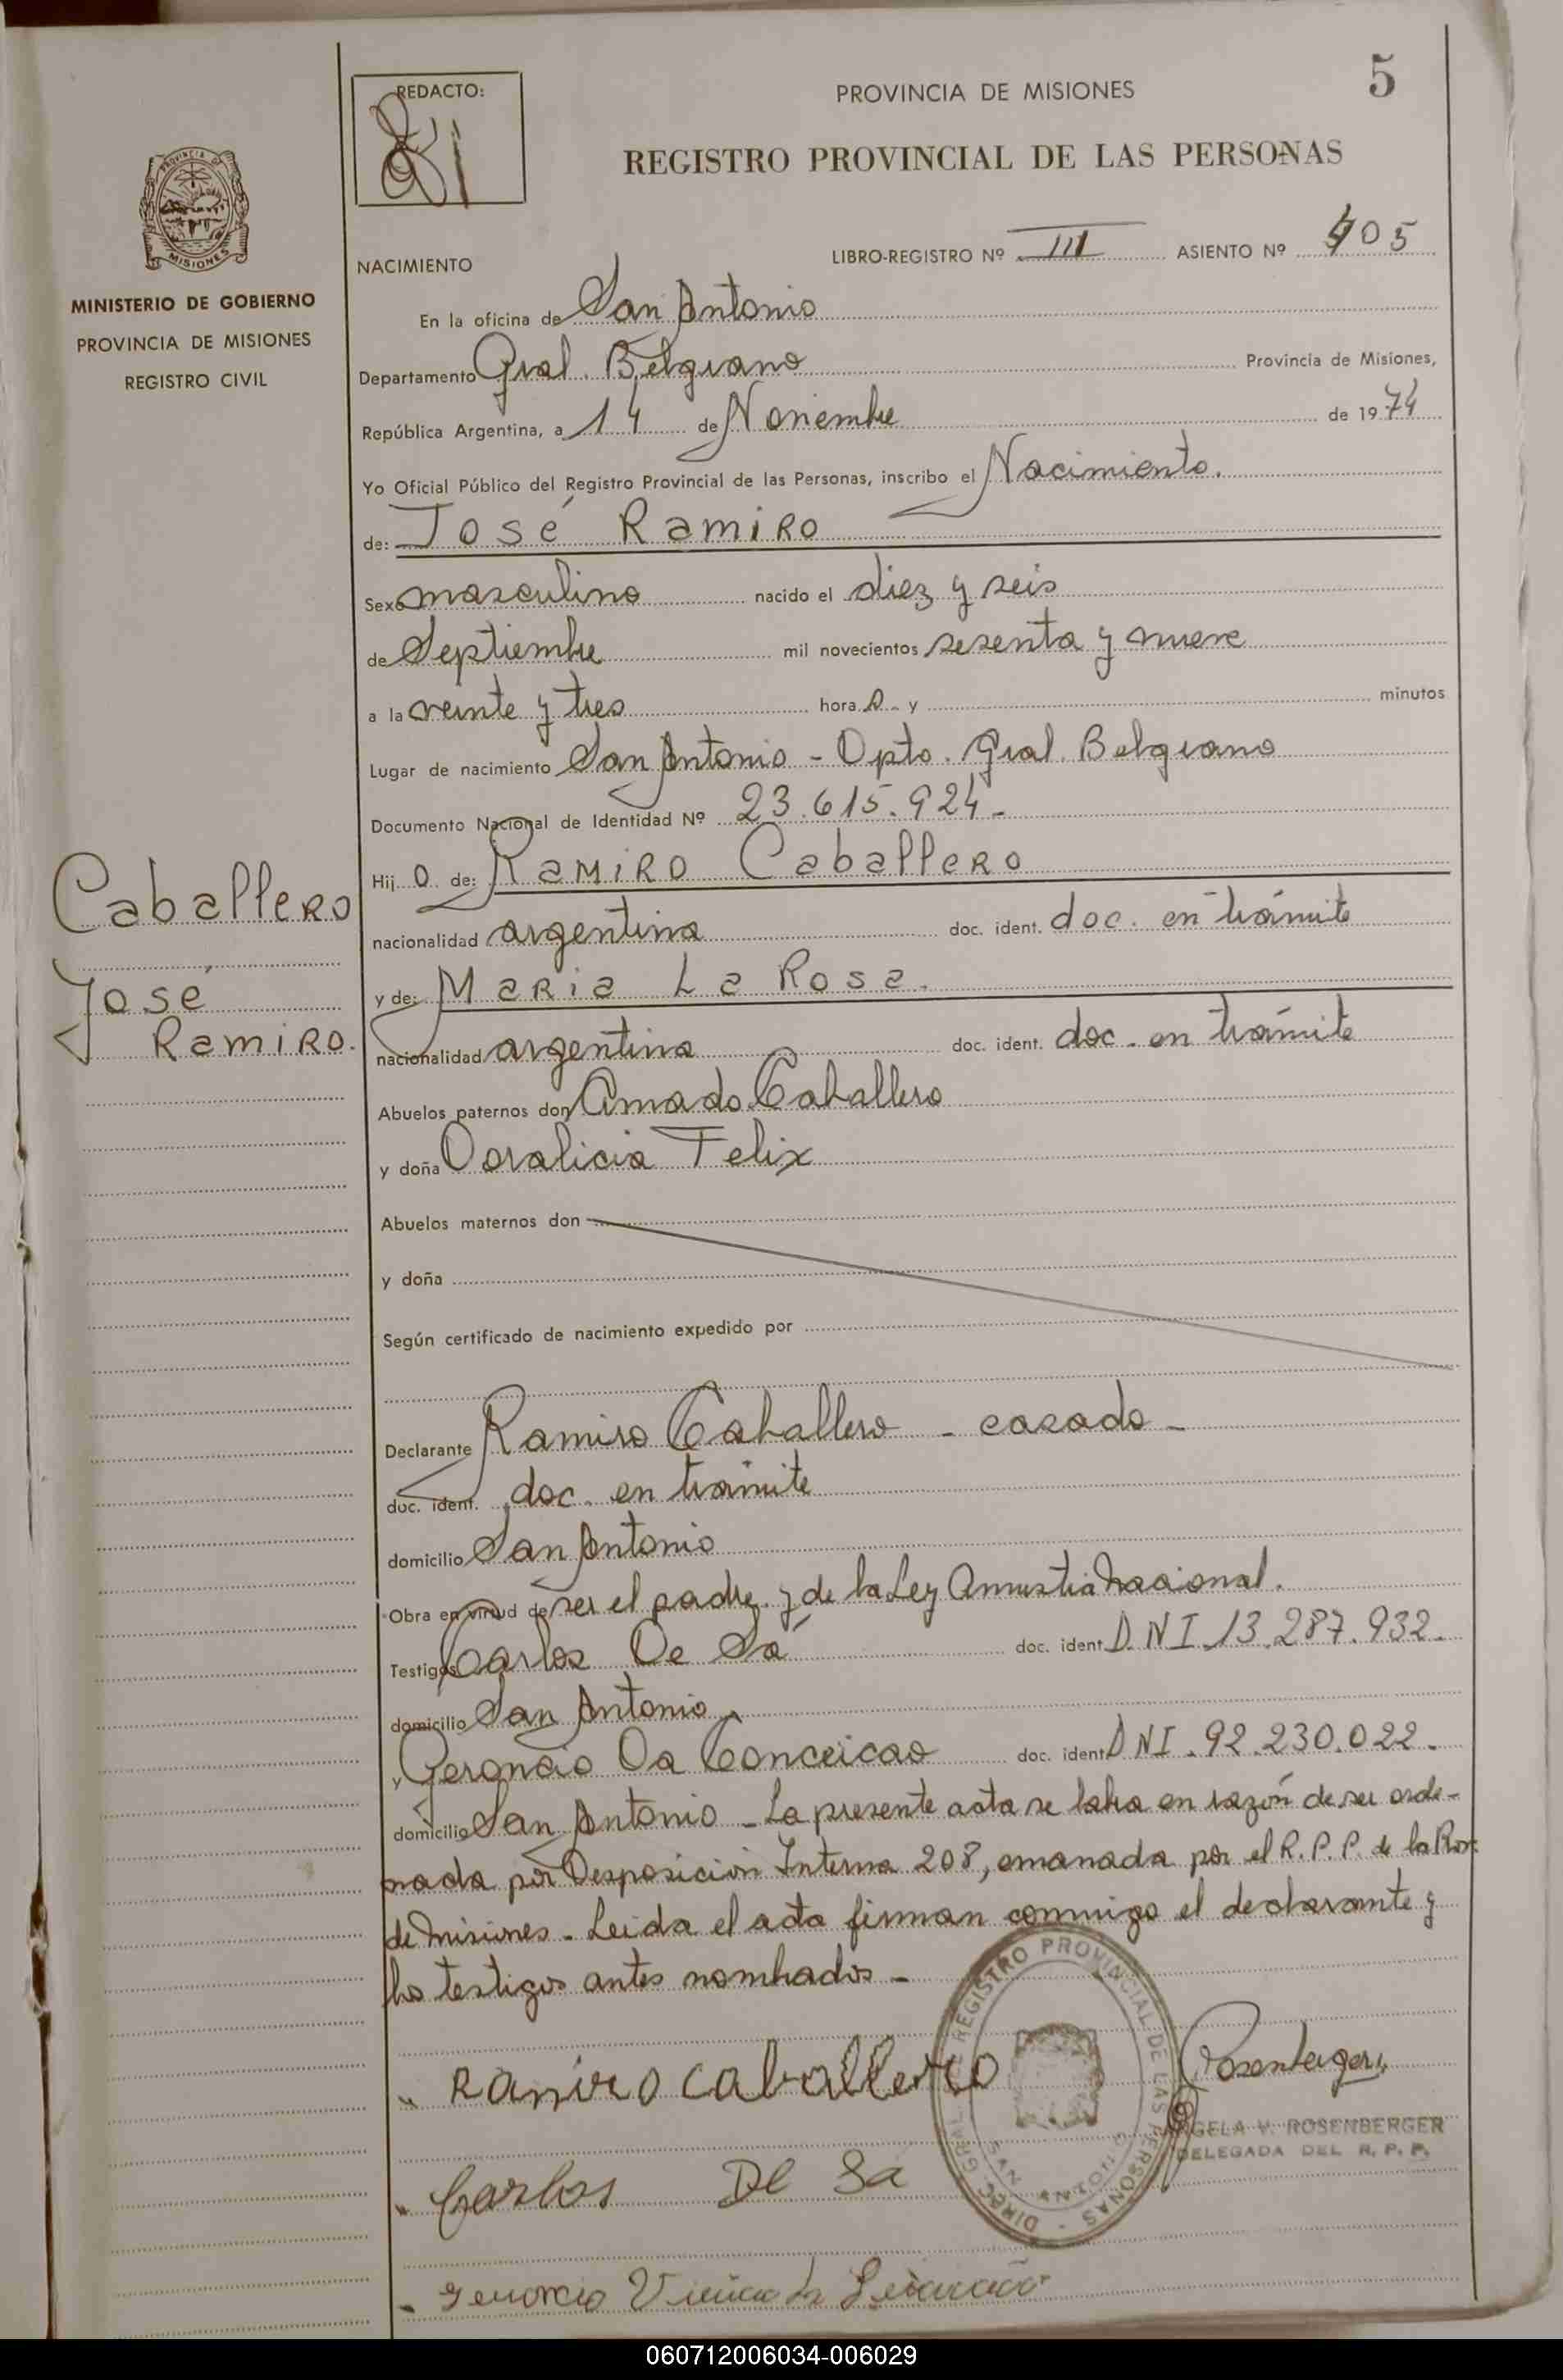 5
REDACTO:
PROVINCIA DE MISIONES
REGISTRO PROVINCIAL DE LAS PERSONAS
PROVINCIA DE
MISIONES
MINISTERIO DE GOBIERNO
PROVINCIA DE MISIONES
REGISTRO CIVIL
NACIMIENTO
LIBRO-REGISTRO Nº III ASIENTO Nº 405
En la oficina de San Antonio
Departamento Gral. Belgrano Provincia de Misiones,
República Argentina, a 14 de Noviembre de 1974
Yo Oficial Público del Registro Provincial de las Personas, inscribo el Nacimiento.
de: José Ramiro
Sexo masculino nacido el diez y seis
de Septiembre mil novecientos sesenta y nueve
a la veinte y tres hora s - y minutos
Lugar de nacimiento San Antonio - Dpto. Gral. Belgrano
Documento Nacional de Identidad Nº 23.615.924 -
Hij o de: Ramiro Caballero
Caballero
José
Ramiro.
nacionalidad argentina doc. ident. doc. en trámite
y de: Maria La Rosa.
nacionalidad argentina doc. ident. doc. en trámite
Abuelos paternos don Amado Caballero
y doña Doralicia Felix
Abuelos maternos don
y doña
Según certificado de nacimiento expedido por
Declarante Ramiro Caballero - casado -
doc. ident. doc. en trámite
domicilio San Antonio
Obra en virtud de ser el padre y de la Ley Amnistia Nacional.
Testigos Carlos De Sá doc. ident. D.N.I. 13.287.932.
domicilio San Antonio
y Geroncio Da Conceicao doc. ident. DNI. 92.230.022.
domicilio San Antonio - La presente acta se labra en razón de ser orde-
nada por Desposición Interna 208, emanada por el R.P.P. de la Prov.
de Misiones - Leida el acta firman conmigo el declarante y
los testigos antes nombrados -
Ramiro Caballero
Rosenberger
ANGELA V. ROSENBERGER
DELEGADA DEL R. P. P.
DIREC. GRAL. REGISTRO PROVINCIAL DE LAS PERSONAS -
SAN ANTONIO
Carlos De Sá
060712006034-006029